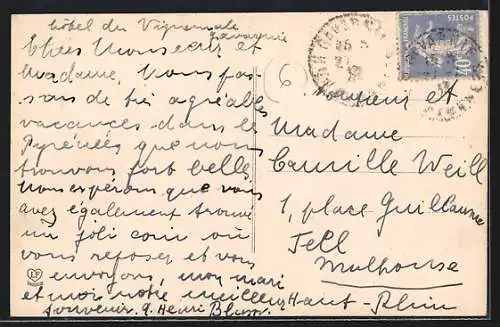 hôtel du Vignemale
Gavarnie
Chers Monsieur et
Madame, Nous pas-
sons de très agréables
vacances dans les
Pyrénées que nous
trouvons fort belles
Nous espérons que vous
avez également trouvé
un joli coin où
vous reposer et vous
envoyons, mon mari
et moi notre meilleur
souvenir. H. Henri Blum
6
Monsieur et
Madame
Camille Weill
1, place Guillaume
Tell
Mulhouse
Haut-Rhin
POSTES
40